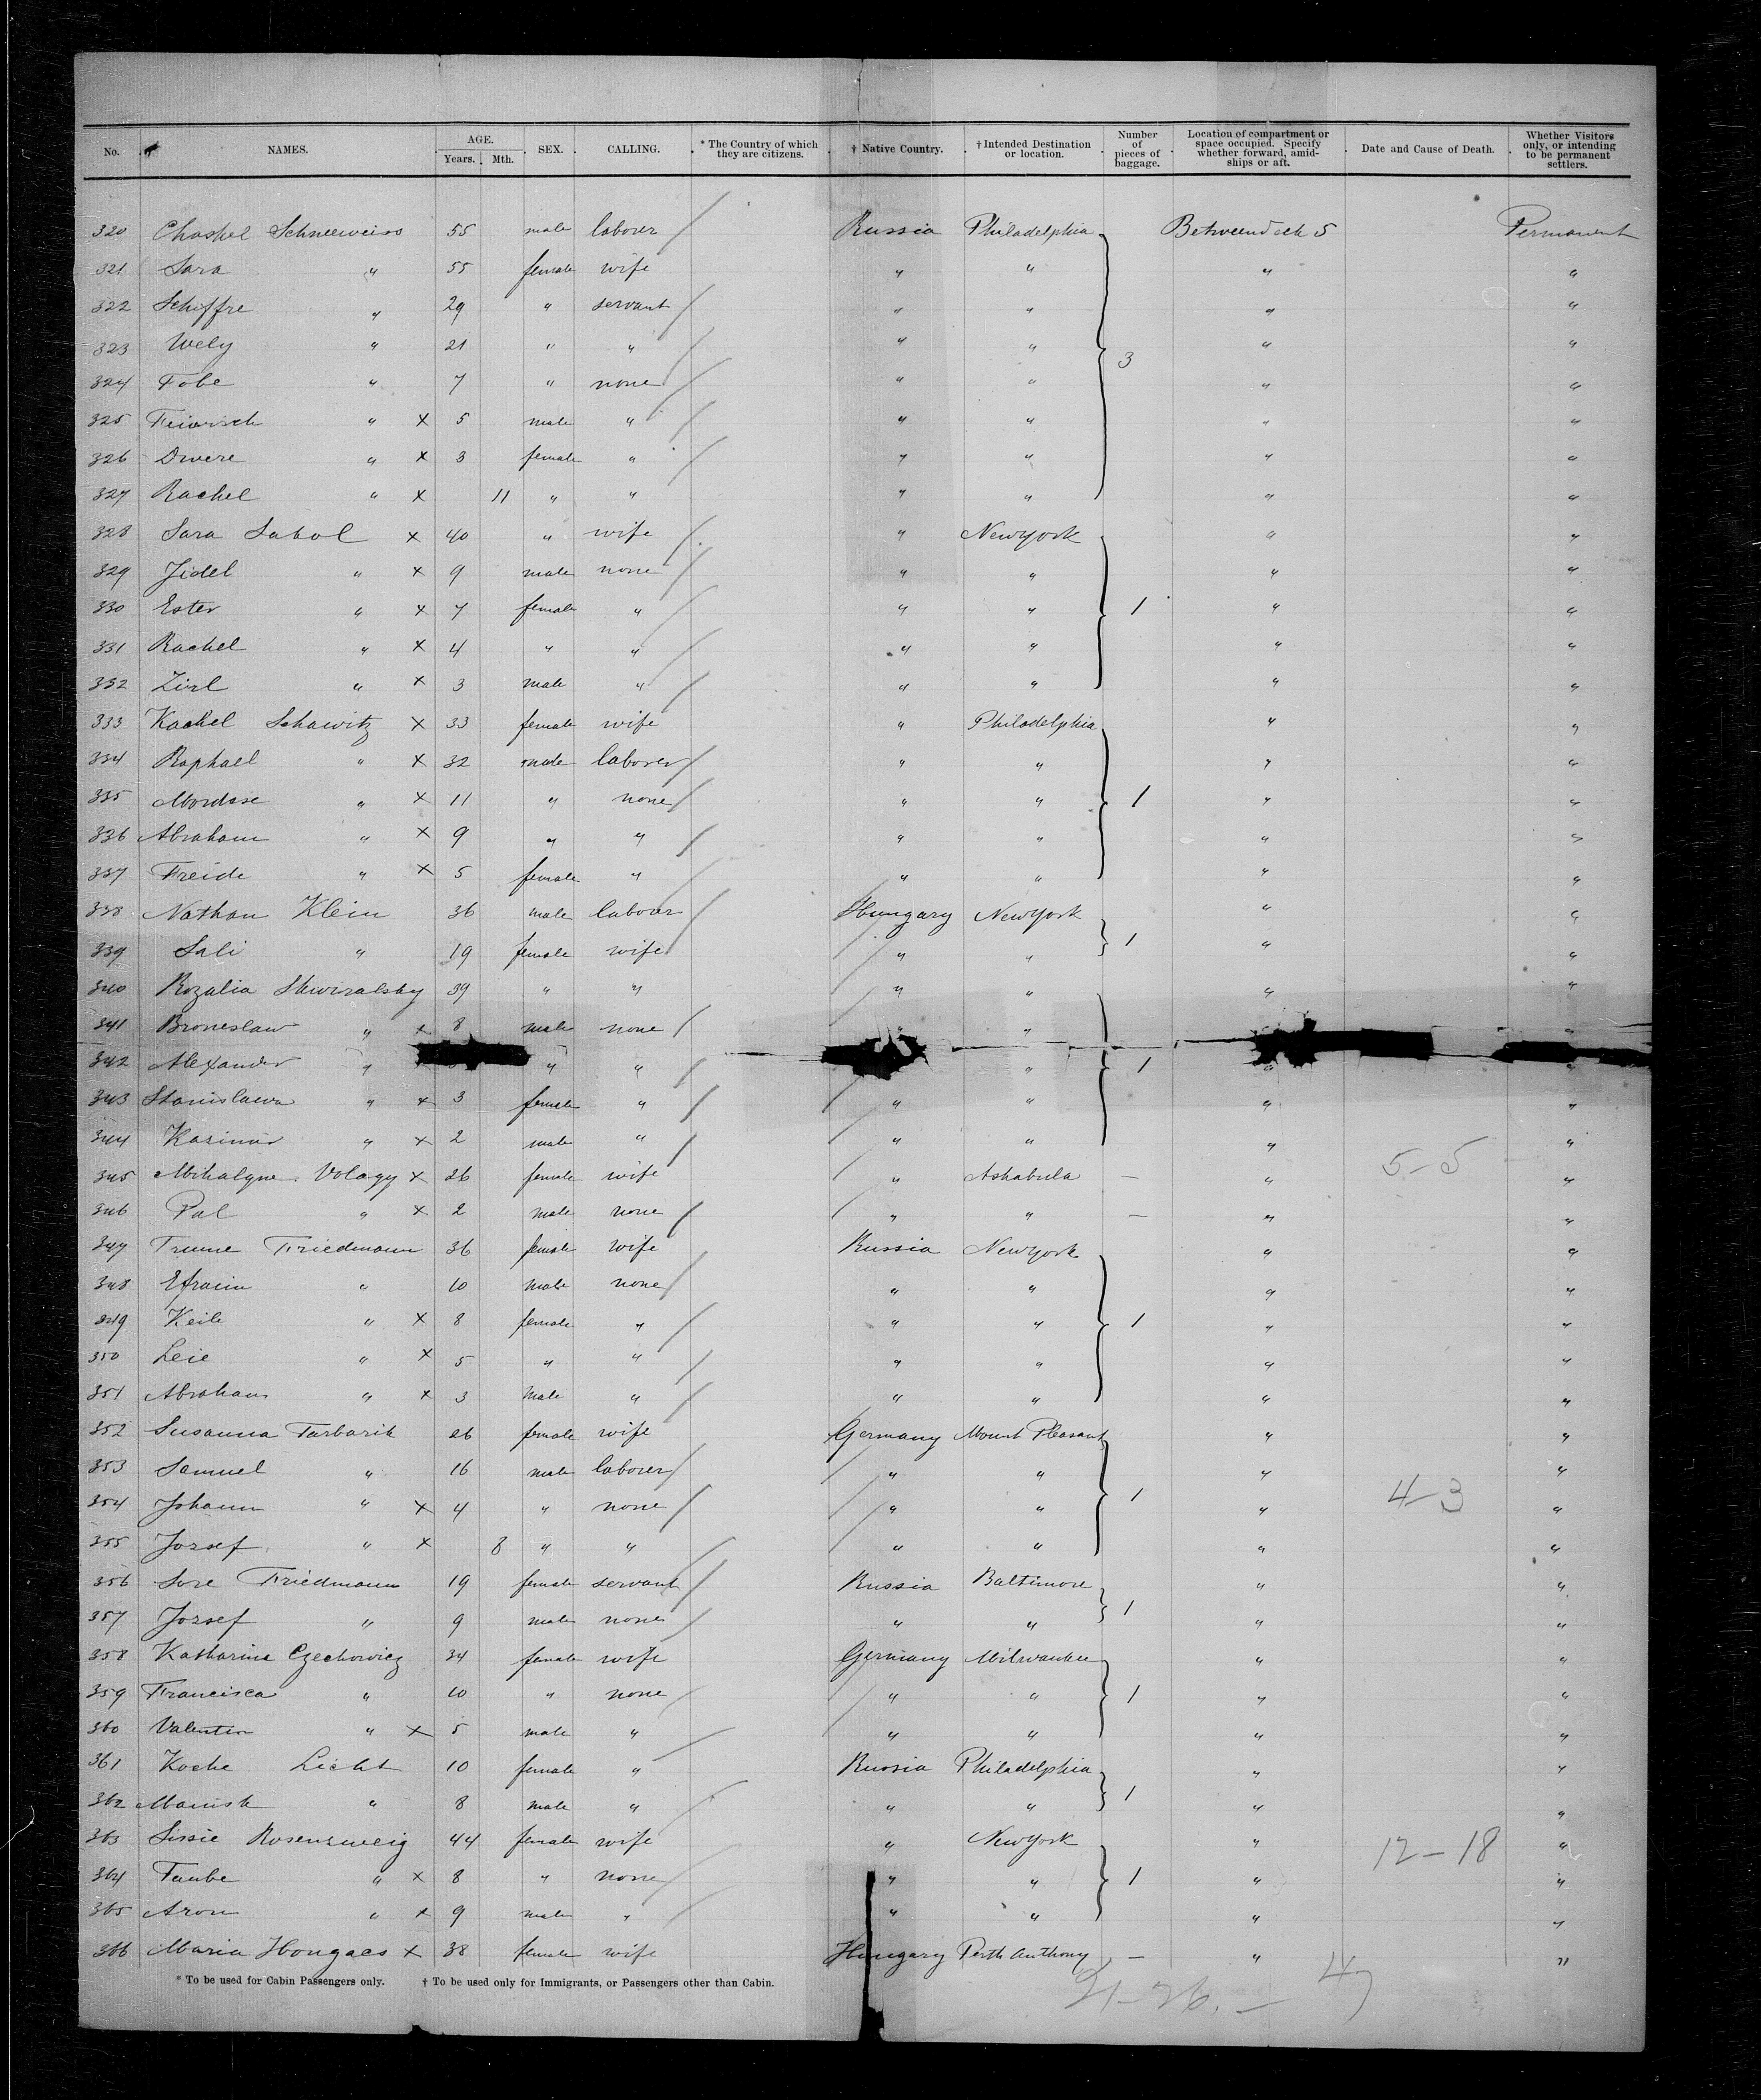 No. NAMES. AGE. Years. Mth. SEX. CALLING. * The Country of which they are citizens. † Native Country. † Intended Destination or location. Number of pieces of baggage. Location of compartment or space occupied. Specify whether forward, amidships or aft. Date and Cause of Death. Whether Visitors only, or intending to be permanent settlers.
320 Chaskel Schneeweiss 55 male laborer Russia Philadelphia Betweendeck 5 Permanent
321 Sara " 55 female wife " " " "
322 Schiffre " 29 " servant " " " "
323 Wely " 21 " " " " 3 " "
324 Tobe " 7 " none " " " "
325 Feiwisch " x 5 male " " " " "
326 Dwere " x 3 female " " " " "
327 Rachel " x 11 " " " " " "
328 Sara Sabol x 40 " wife " Newyork " "
329 Jidel " x 9 male none " " " "
330 Ester " x 7 female " " " 1 " "
331 Rachel " x 4 " " " " " "
332 Zirl " x 3 male " " " " "
333 Rachel Schawitz x 33 female wife " Philadelphia " "
334 Raphael " x 32 male laborer " " " "
335 Mordsse " x 11 " none " " 1 " "
336 Abraham " x 9 " " " " " "
337 Freide " x 5 female " " " " "
338 Nathan Klein 36 male laborer Hungary Newyork " "
339 Sali " 19 female wife " " 1 " "
340 Rozalia 39 " " " " " "
341 Broneslaw " x 8 male none " " "
342 Alexander " " " " 1 " "
343 Stanislawa " x 3 female " " " " "
344 Kasimir " x 2 male " " " " "
345 Mihalyne Volagy x 26 female wife " Ashabula — " 5-5 "
346 Pal " x 2 male none " " — " "
347 Trume Friedmann 36 female wife Russia Newyork " "
348 Efraim " 10 male none " " " "
349 Keile " x 8 female " " " 1 " "
350 Leie " x 5 " " " " " "
351 Abraham " x 3 male " " " " "
352 Susanna Tarbarik 26 female wife Germany Mount Pleasant " "
353 Samuel " 16 male laborer " " " "
354 Johann " x 4 " none " " 1 " 4-3 "
355 Jozsef " x 8 " " " " " "
356 Sore Friedmann 19 female servant Russia Baltimore " "
357 Jozsef " 9 male none " " 1 " "
358 Katharina Czechowicz 34 female wife Germany Milwaukee " "
359 Francisca " 10 " none " " 1 " "
360 Valentin " x 5 male " " " " "
361 Koche Licht 10 female " Russia Philadelphia " "
362 Manish " 8 male " " " 1 " "
363 Sissie Rosenzweig 44 female wife " Newyork " 12-18 "
364 Taube " x 8 " none " " 1 " "
365 Aron " x 9 male " " " " "
366 Maria Hongacs x 38 female wife Hungary Perth Anthony — " "
* To be used for Cabin Passengers only. † To be used only for Immigrants, or Passengers other than Cabin.
21-26. — 47